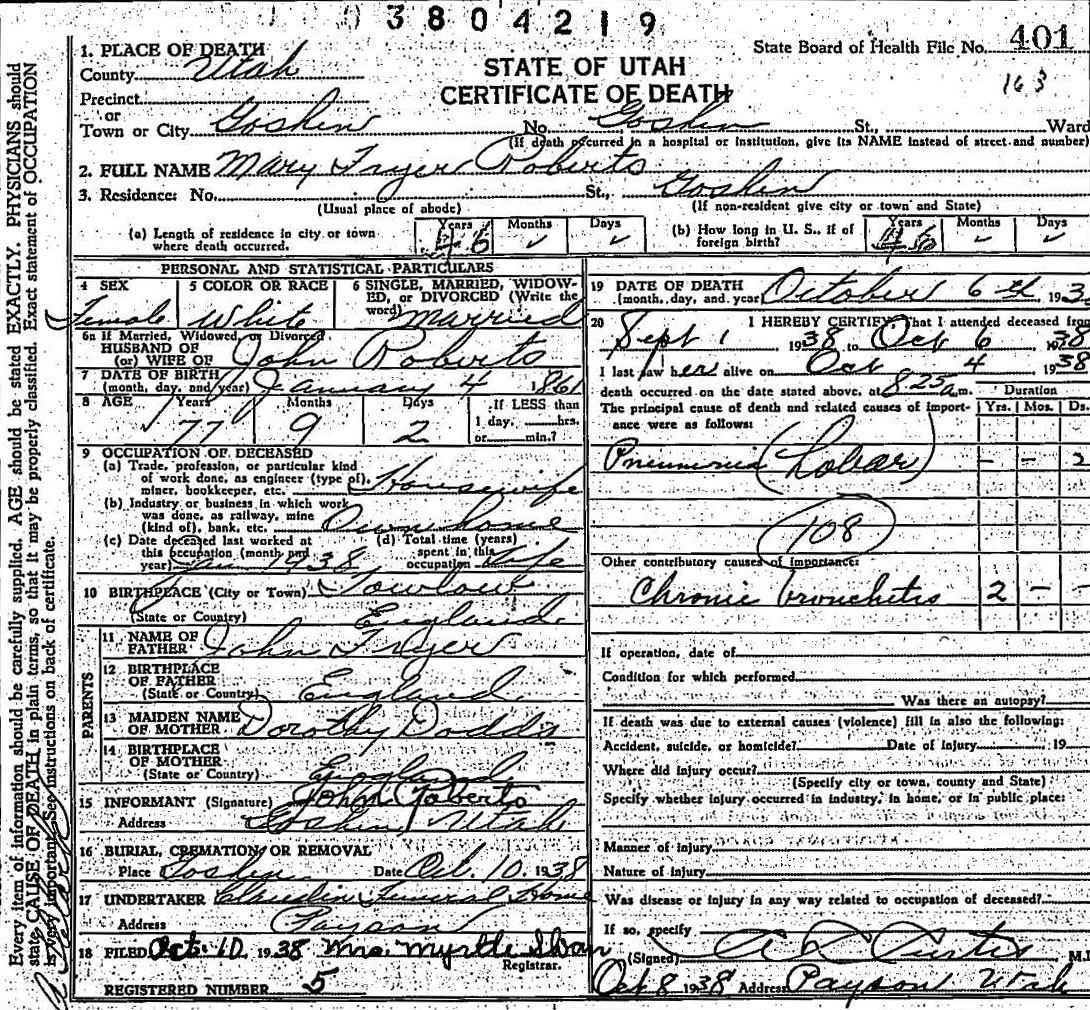 3804219
State Board of Health File No. 401
163
STATE OF UTAH
CERTIFICATE OF DEATH
1. PLACE OF DEATH
County Utah
Precinct
or
Town or City Goshen No. Goshen St., Ward
(If death occurred in a hospital or institution, give its NAME instead of street and number)
2. FULL NAME Mary Fryer Roberts
3. Residence: No. St., Goshen
(Usual place of abode) (If non-resident give city or town and State)
(a) Length of residence in city or town where death occurred. Years 46 Months ✓ Days ✓
(b) How long in U. S., if of foreign birth? Years Months Days
PERSONAL AND STATISTICAL PARTICULARS
4 SEX Female
5 COLOR OR RACE White
6 SINGLE, MARRIED, WIDOWED, or DIVORCED (Write the word) married
6a If Married, Widowed, or Divorced
HUSBAND OF
(or) WIFE OF John Roberts
7 DATE OF BIRTH
(month, day, and year) January 4 1861
8 AGE Years 77 Months 9 Days 2 If LESS than
1 day, hrs.
or min.?
9 OCCUPATION OF DECEASED
(a) Trade, profession, or particular kind
of work done, as engineer (type of),
miner, bookkeeper, etc. Housewife
(b) Industry or business in which work
was done, as railway, mine
(kind of), bank, etc. Own home
(c) Date deceased last worked at
this occupation (month and
year) Jan 1938
(d) Total time (years)
spent in this
occupation Life
10 BIRTHPLACE (City or Town)
(State or Country) England
PARENTS
11 NAME OF
FATHER John Fryer
12 BIRTHPLACE
OF FATHER
(State or Country) England
13 MAIDEN NAME
OF MOTHER Dorothy Dodds
14 BIRTHPLACE
OF MOTHER
(State or Country) England
15 INFORMANT (Signature) John Roberts
Address Goshen, Utah
16 BURIAL, CREMATION OR REMOVAL
Place Goshen Date Oct. 10, 1938
17 UNDERTAKER Funeral Home
Address Payson
18 FILED Oct. 10, 1938 Mrs. Myrtle
Registrar.
REGISTERED NUMBER 5
19 DATE OF DEATH
(month, day, and year) October 6th 193
20 I HEREBY CERTIFY, That I attended deceased from
Sept 1 1938 to Oct 6 1938
I last saw her alive on Oct 4 1938
death occurred on the date stated above, at 8 25 a m.
Duration
The principal cause of death and related causes of import- Yrs. Mos. D
ance were as follows:
Pneumonia (Lobar) – – 2
108
Other contributory causes of importance:
Chronic bronchitis 2 – –
If operation, date of
Condition for which performed
Was there an autopsy?
If death was due to external causes (violence) fill in also the following:
Accident, suicide, or homicide? Date of injury 19
Where did injury occur?
(Specify city or town, county and State)
Specify whether injury occurred in industry, in home, or in public place:
Manner of injury
Nature of injury
Was disease or injury in any way related to occupation of deceased?
If so, specify
(Signed) Curtis M.
Oct 8 1938 Address Payson Utah
Every item of information should be carefully supplied. AGE should be stated EXACTLY. PHYSICIANS should
state CAUSE OF DEATH in plain terms, so that it may be properly classified. Exact statement of OCCUPATION
is very important. See instructions on back of certificate.